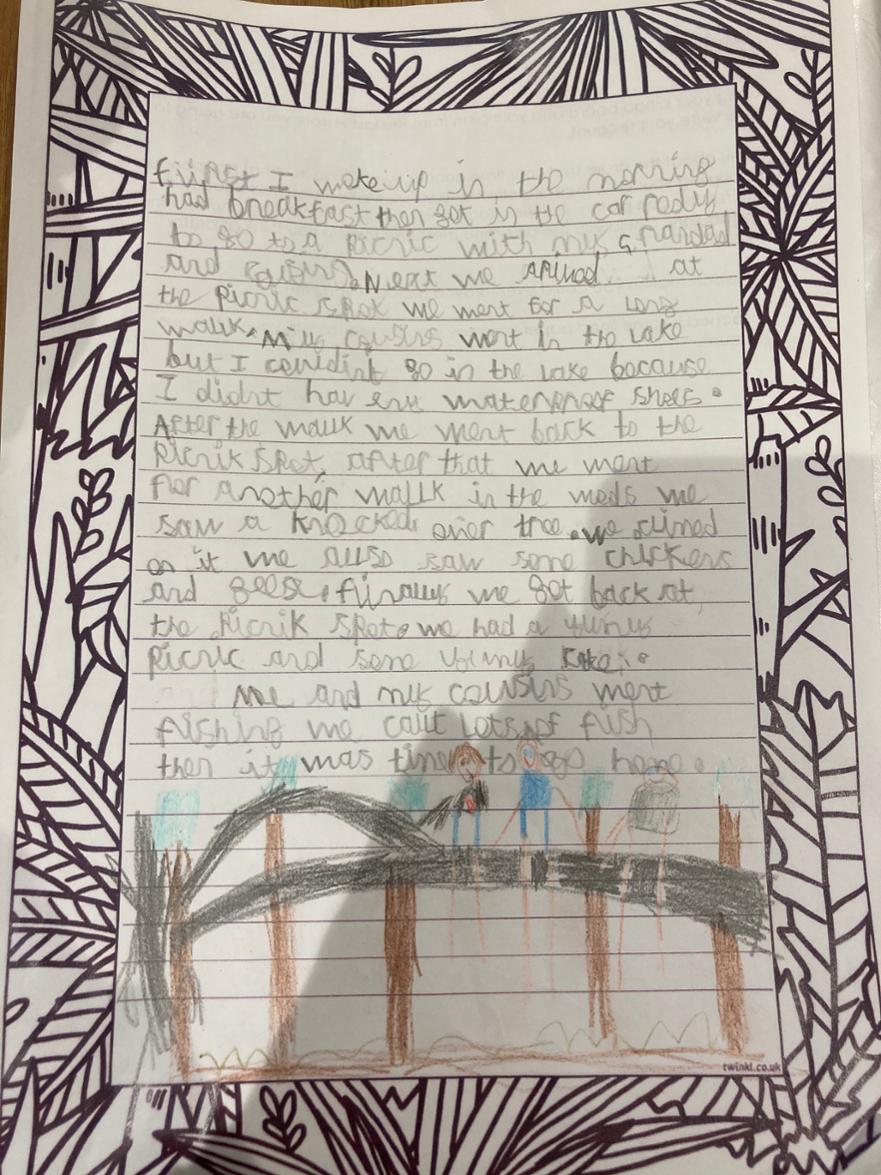 fiirst I woke up in the morning
had breakfast then get in the car redy
to go to a picnic with my grandad
and cousins. Next we arived at
the picnic spot we went for a long
walk. My cousins went in the lake
but I couldint go in the lake because
I didnt hav eny waterproof shoes.
After the wallk we went back to the
picnik spot. after that we went
for another wallk in the
saw a knocked over tree. we climed
on it we allso saw some chickens
and geese. finally we got back at
the picnik spot. we had a yumy
picnic and some yumy cake.
Me and my cousins went
fishing we caut lots of fish
then it was time to go home.
twinkl.co.uk